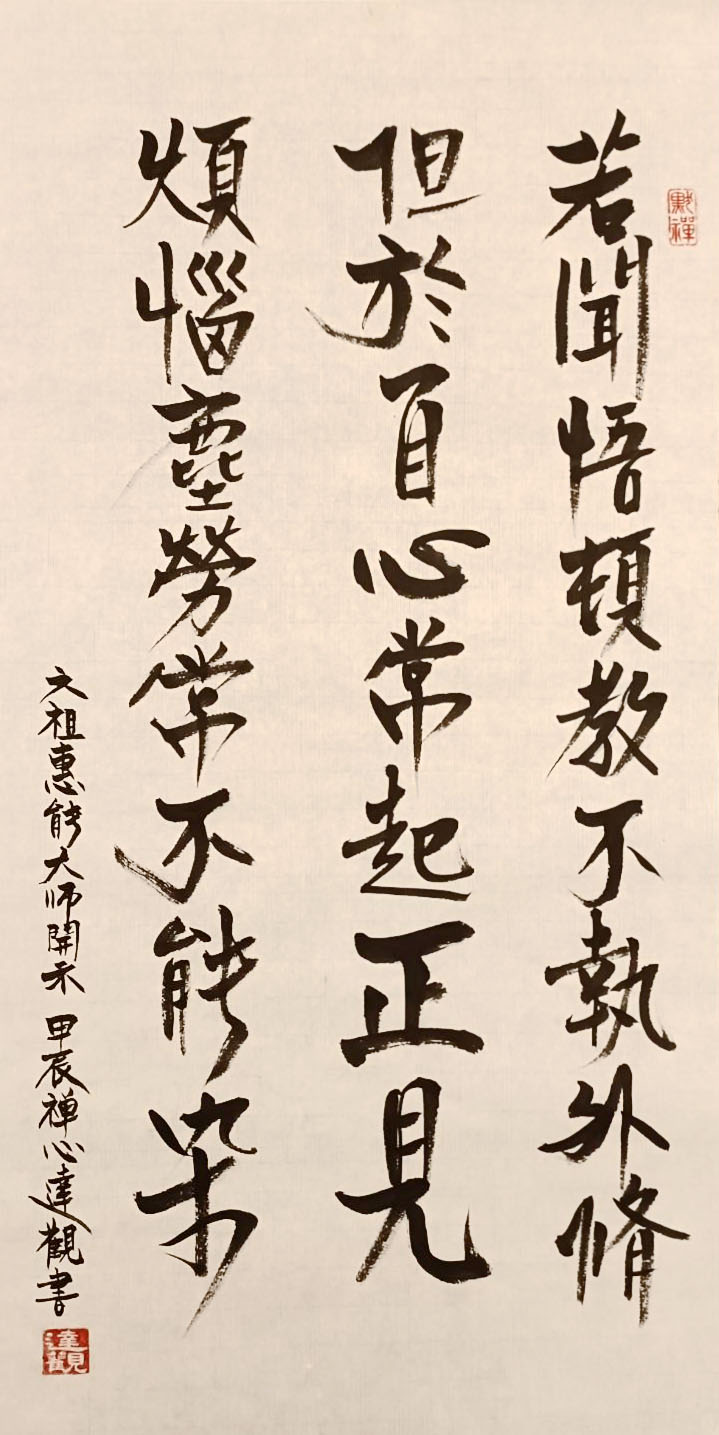 若聞悟頓教不執外脩
但於自心常起正見
煩惱塵勞常不能染
六祖惠能大师開示 甲辰禅心達觀書
達觀